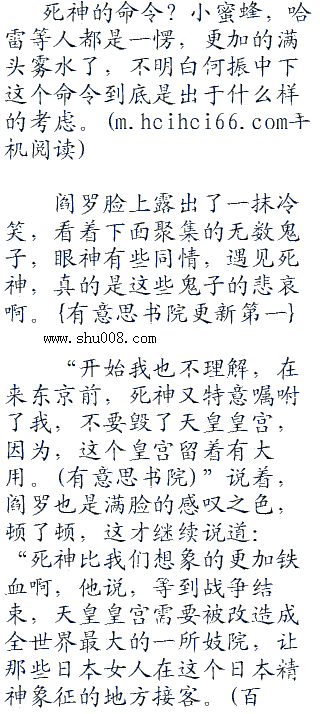 死神的命令？小蜜蜂，哈
雷等人都是一愣，更加的满
头雾水了，不明白何振中下
这个命令到底是出于什么样
的考虑。(m.hcihci66.com手
机阅读)
阎罗脸上露出了一抹冷
笑，看着下面聚集的无数鬼
子，眼神有些同情，遇见死
神，真的是这些鬼子的悲哀
啊。{有意思书院更新第一}
www.shu008.com
“开始我也不理解，在
来东京前，死神又特意嘱咐
了我，不要毁了天皇皇宫，
因为，这个皇宫留着有大
用。(有意思书院)”说着，
阎罗也是满脸的感叹之色，
顿了顿，这才继续说道：
“死神比我们想象的更加铁
血啊，他说，等到战争结
束，天皇皇宫需要被改造成
全世界最大的一所妓院，让
那些日本女人在这个日本精
神象征的地方接客。(百